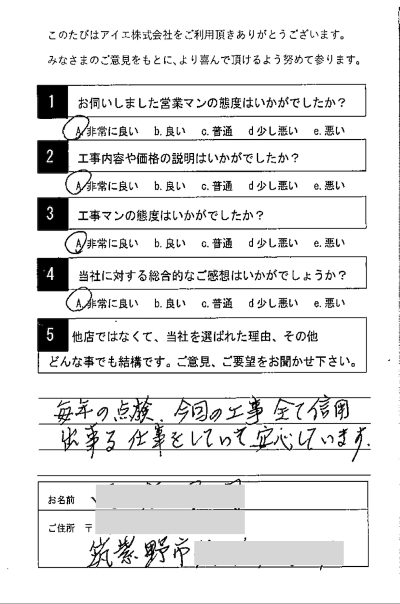 このたびはアイエ株式会社をご利用頂きありがとうございます。
みなさまのご意見をもとに、より喜んで頂けるよう努めて参ります。
1 お伺いしました営業マンの態度はいかがでしたか？
A.非常に良い b.良い c.普通 d少し悪い e.悪い
2 工事内容や価格の説明はいかがでしたか？
A.非常に良い b.良い c.普通 d少し悪い e.悪い
3 工事マンの態度はいかがでしたか？
A.非常に良い b.良い c.普通 d少し悪い e.悪い
4 当社に対する総合的なご感想はいかがでしょうか？
A.非常に良い b.良い c.普通 d少し悪い e.悪い
5 他店ではなくて、当社を選ばれた理由、その他
どんな事でも結構です。ご意見、ご要望をお聞かせ下さい。
毎年の点検、今回の工事 全て信用
出来る仕事をしていて安心しています。
お名前
ご住所 〒
筑紫野市